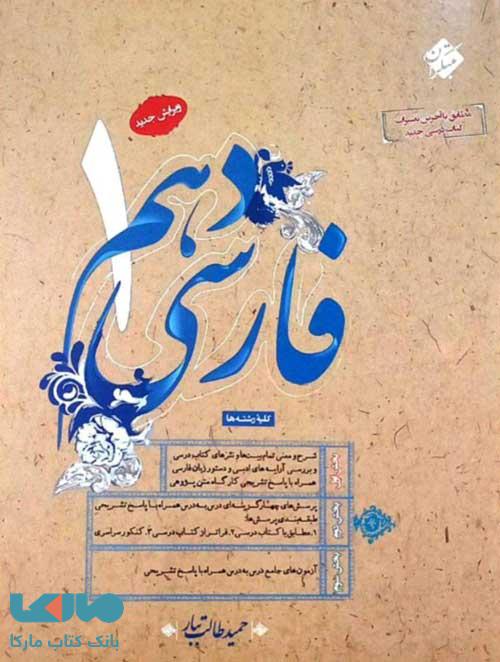 مبتکران
ویرایش جدید
مطابق با آخرین تغییرات
کتاب درسی جدید
فارسی
دهم
۱
کلیهٔ رشته‌ها
بخش اول
شرح و معنی تمام بیت‌ها و نثرهای کتاب درسی
و بررسی آرایه‌های ادبی و دستور زبان فارسی
همراه با پاسخ تشریحی کارگاه متن پژوهی
بخش دوم
پرسش‌های چهارگزینه‌ای درس به درس همراه با پاسخ تشریحی
طبقه‌بندی پرسش‌ها:
۱. مطابق با کتاب درسی ۲. فراتر از کتاب درسی ۳. کنکور سراسری
بخش سوم
آزمون‌های جامع درس به درس همراه با پاسخ تشریحی
حمید طالب تبار
مارکا
بانک کتاب مارکا